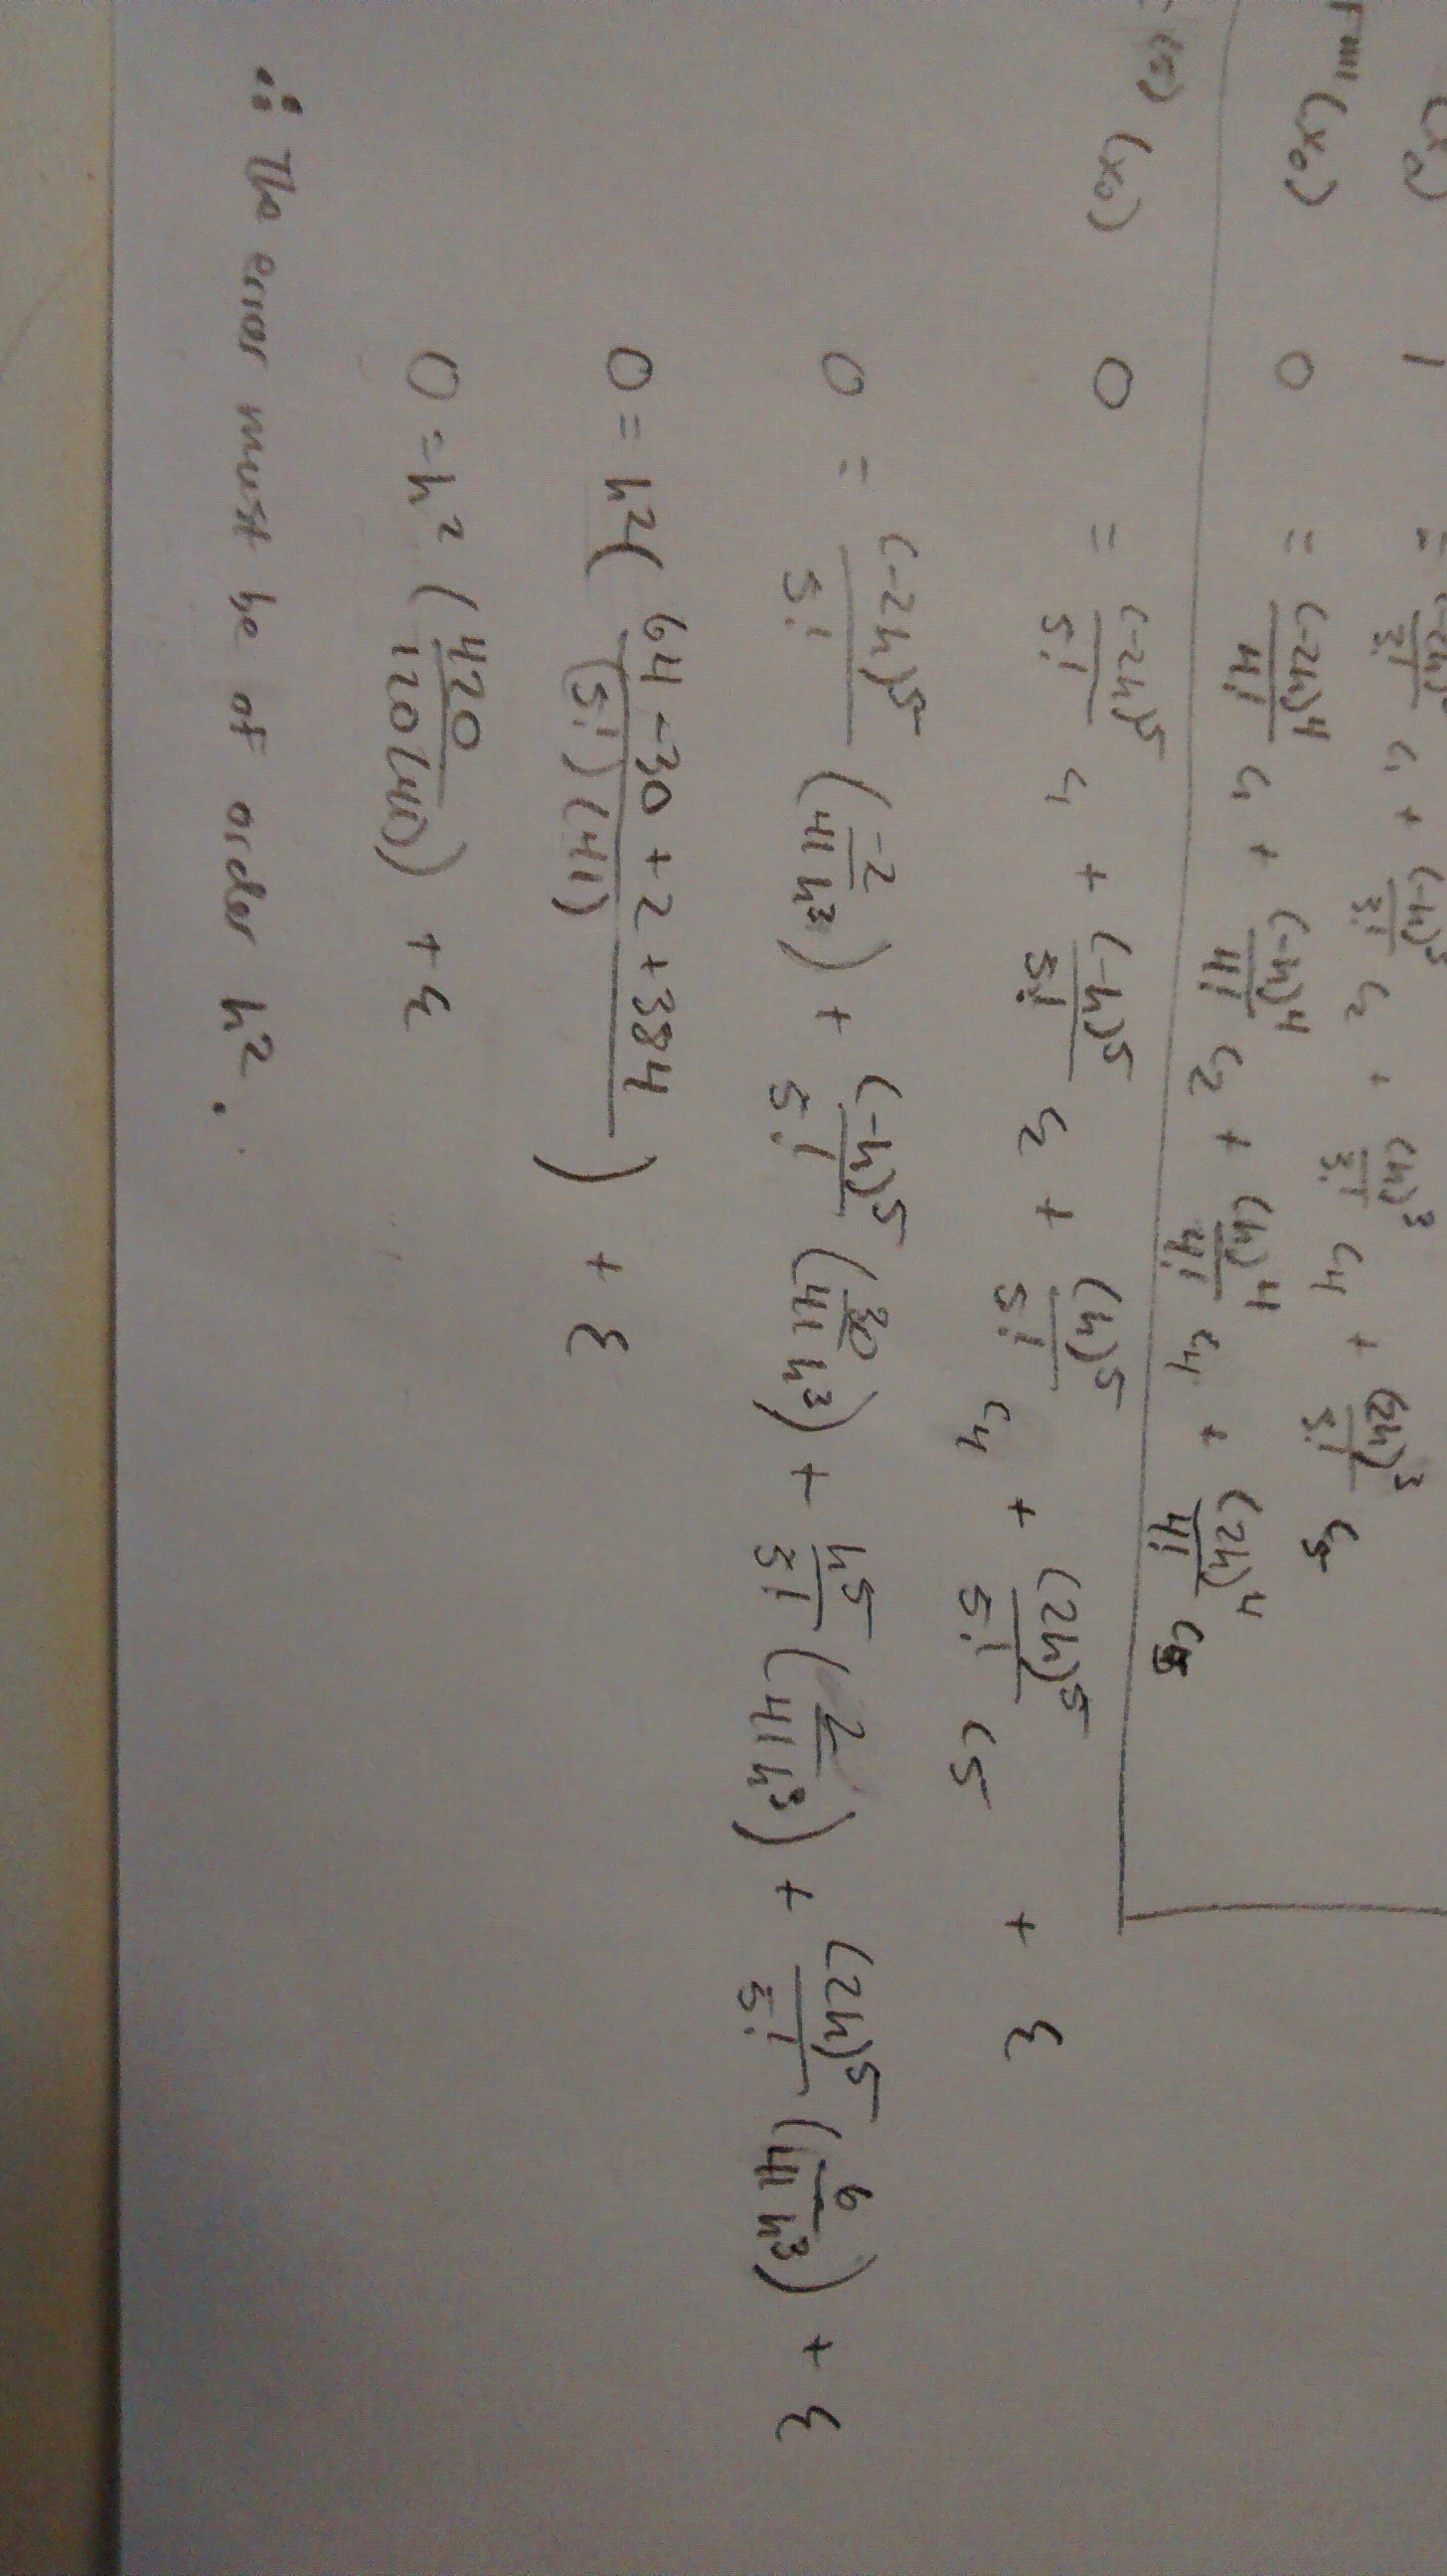 1 = (-2h)³/3! c₁ + (-h)³/3! c₂ + (h)³/3! c₄ + (2h)³/3! c₅
F''''(x₀) 0 = (-2h)⁴/4! c₁ + (-h)⁴/4! c₂ + (h)⁴/4! c₄ + (2h)⁴/4! c₅
(5)(x₀) 0 = (-2h)⁵/5! c₁ + (-h)⁵/5! c₂ + (h)⁵/5! c₄ + (2h)⁵/5! c₅ + ε
0 = (-2h)⁵/5! (-2/41h³) + (-h)⁵/5! (30/41h³) + h⁵/5! (2/41h³) + (2h)⁵/5! (6/41h³) + ε
0 = h² (64 - 30 + 2 + 384/(5!)(41)) + ε
0 = h² (420/120(41)) + ε
∴ The error must be of order h².